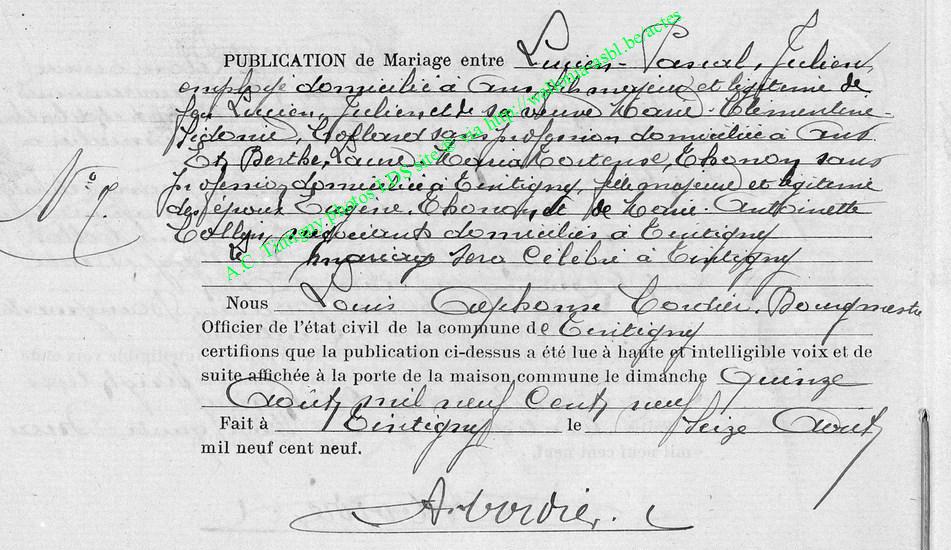 PUBLICATION de Mariage entre Lucien Pascal, Julien
employé domicilié à Ans fils majeur et légitime de
feu Lucien, Julien et de sa veuve Marie Clémentine
Sidonie, sans profession domiciliée à Ans
Et Berthe, Laure, Maria Hortense, Thonon, sans
N° 8. profession domiciliée à Tintigny, fille majeure et légitime
des époux Eugène Thonon et de Marie Antoinette
négociants domiciliés à Tintigny
Le mariage sera célébré à Tintigny
Nous Louis Alphonse Cordier, Bourgmestre
Officier de l'état civil de la commune de Tintigny
certifions que la publication ci-dessus a été lue à haute et intelligible voix et de
suite affichée à la porte de la maison commune le dimanche Quinze
Août mil neuf cent neuf
Fait à Tintigny le Seize Août
mil neuf cent neuf.
A. Cordier.
A.C. Tintigny photos LDS site @ via http://wallonia-asbl.be/actes